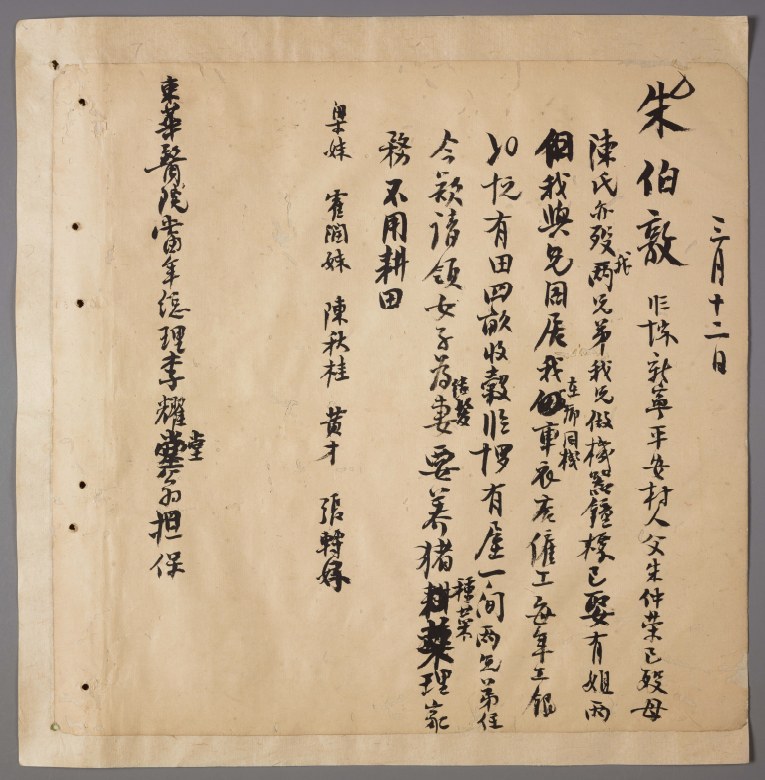 三月十二日
朱伯敦 新寧平安村人父朱仲榮已歿母
陳氏亦歿我兩兄弟我兄做機器鐘樣已娶有姐兩
但我與兄同居我在鄉同機車衣店僱工每年工銀
有田四畝收穀 有屋一間兩兄弟住
今欲請領女子為妻要養猪種菜理家
務不用耕田
梁妹 霍潤妹 陳秋桂 黄才 張轉好
東華醫院當年總理李耀堂翁担保